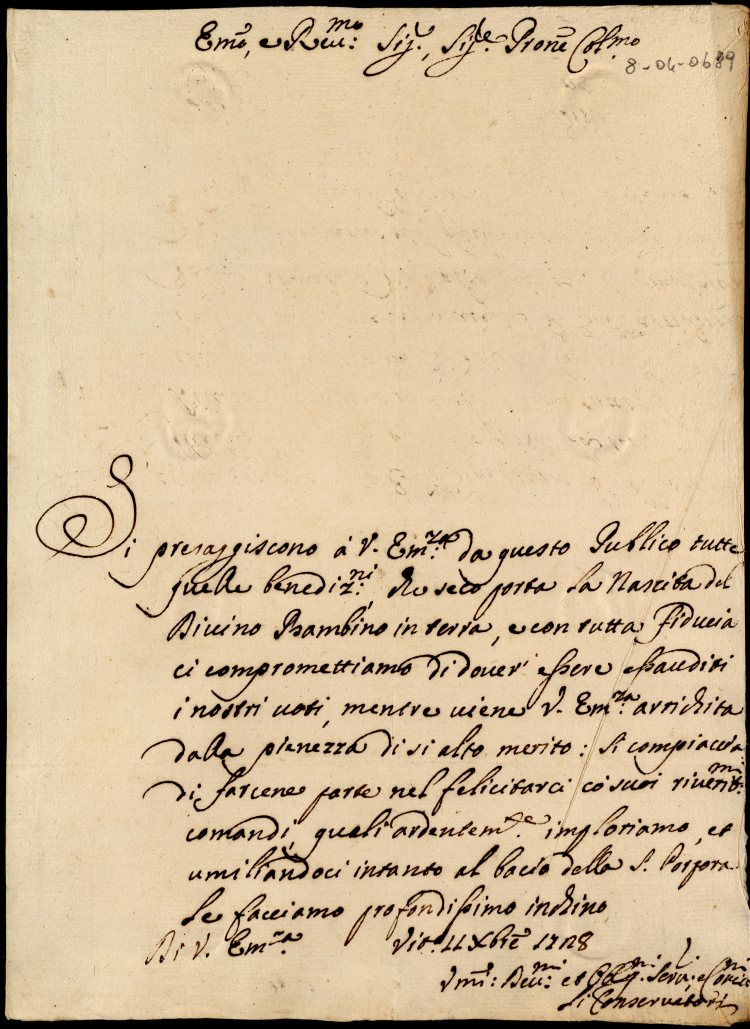 Emo, e Reu:mo Sig.r, Sig.re Prone Col.mo
8-04-0689
Si presaggiscono à V. Em.za da questo Publico tutte
quelle benediz:ni, che seco porta la Nascita del
Divino Bambino in terra, e con tutta fiducia
ci compromettiamo di dover' essere essauditi
i nostri uoti, mentre uiene V. Em:za arrichita
dalla pienezza di si alto merito: Si compiacerà
di farcene parte nel felicitarci co' suoi riuerit:mi
comandi, quali ardentem.te imploriamo, et
umiliandoci intanto al bacio della S. Porpora
Le facciamo profondissimo inchino
Di V. Em.za Vit.o 11 Xbre 1728
Vmi: Deu:mi et Obb.mi Seru:i
Li Conseruatori